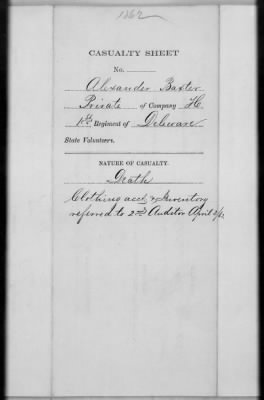 1862
CASUALTY SHEET
No.
Alexander Baxter
Private of Company H.
1st Regiment of Delaware
State Volunteers.
NATURE OF CASUALTY.
Death
Clothing acct & Inventory
referred to 2nd Auditor April